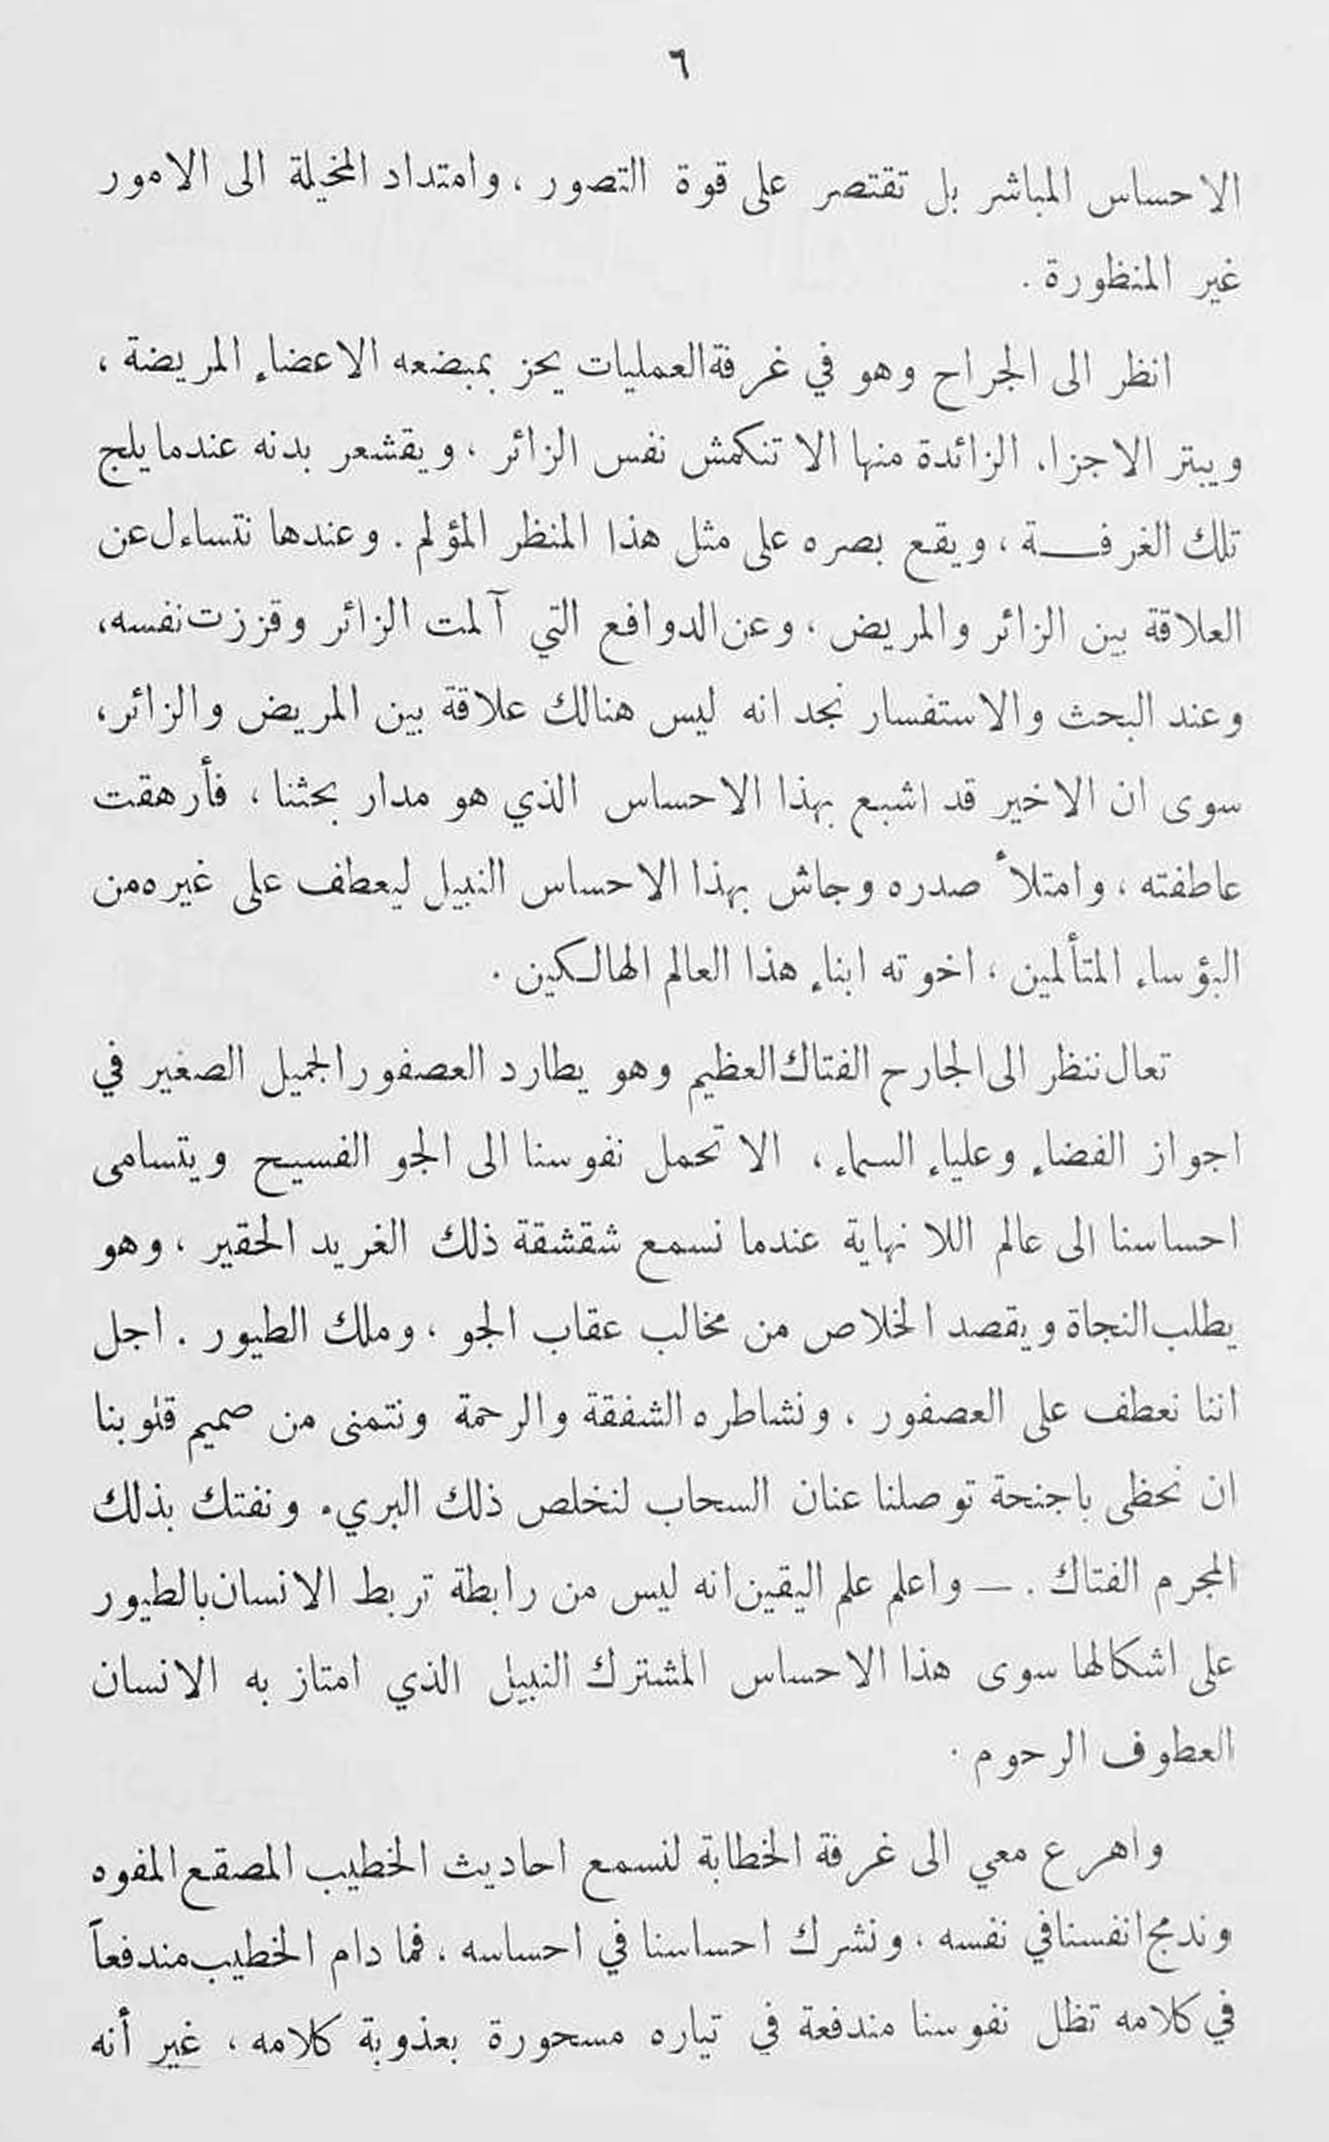 ٦
الاحساس المباشر بل تقتصر على قوة التصور ، وامتداد المخيلة الى الامور
غير المنظورة .
انظر الى الجراح وهو في غرفة العمليات يحز بمبضعه الاعضاء المريضة ،
ويبتر الاجزاء الزائدة منها الا تنكمش نفس الزائر ، ويقشعر بدنه عندما يلج
تلك الغرفــة ، ويقع بصره على مثل هذا المنظر المؤلم . وعندها نتساءل عن
العلاقة بين الزائر والمريض ، وعن الدوافع التي آلمت الزائر وقززت نفسه،
وعند البحث والاستفسار نجد انه ليس هنالك علاقة بين المريض والزائر،
سوى ان الاخير قد اشبع بهذا الاحساس الذي هو مدار بحثنا ، فأرهقت
عاطفته ، وامتلأ صدره وجاش بهذا الاحساس النبيل ليعطف على غيره من
البؤساء المتألمين ، اخوته ابناء هذا العالم الهالكين .
تعال ننظر الى الجارح الفتاك العظيم وهو يطارد العصفور الجميل الصغير في
اجواز الفضاء وعلياء السماء ، الا تحمل نفوسنا الى الجو الفسيح ويتسامى
احساسنا الى عالم اللا نهاية عندما نسمع شقشقة ذلك الغريد الحقير ، وهو
يطلب النجاة ويقصد الخلاص من مخالب عقاب الجو ، وملك الطيور . اجل
اننا نعطف على العصفور ، ونشاطره الشفقة والرحمة ونتمنى من صميم قلوبنا
ان نحظى باجنحة توصلنا عنان السحاب لنخلص ذلك البريء ونفتك بذلك
المجرم الفتاك . — واعلم علم اليقين انه ليس من رابطة تربط الانسان بالطيور
على اشكالها سوى هذا الاحساس المشترك النبيل الذي امتاز به الانسان
العطوف الرحوم .
واهرع معي الى غرفة الخطابة لنسمع احاديث الخطيب المصقع المفوه
وندمج انفسنا في نفسه ، ونشرك احساسنا في احساسه ، فما دام الخطيب مندفعاً
في كلامه تظل نفوسنا مندفعة في تياره مسحورة بعذوبة كلامه ، غير أنه